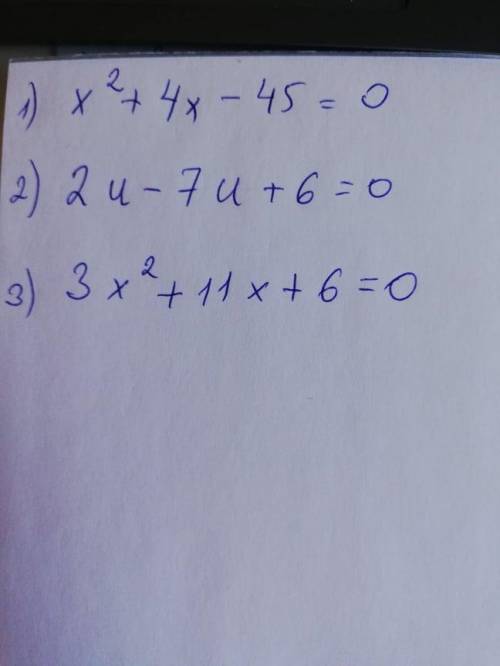 1) x² + 4x - 45 = 0
2) 2u - 7u + 6 = 0
3) 3x² + 11x + 6 = 0